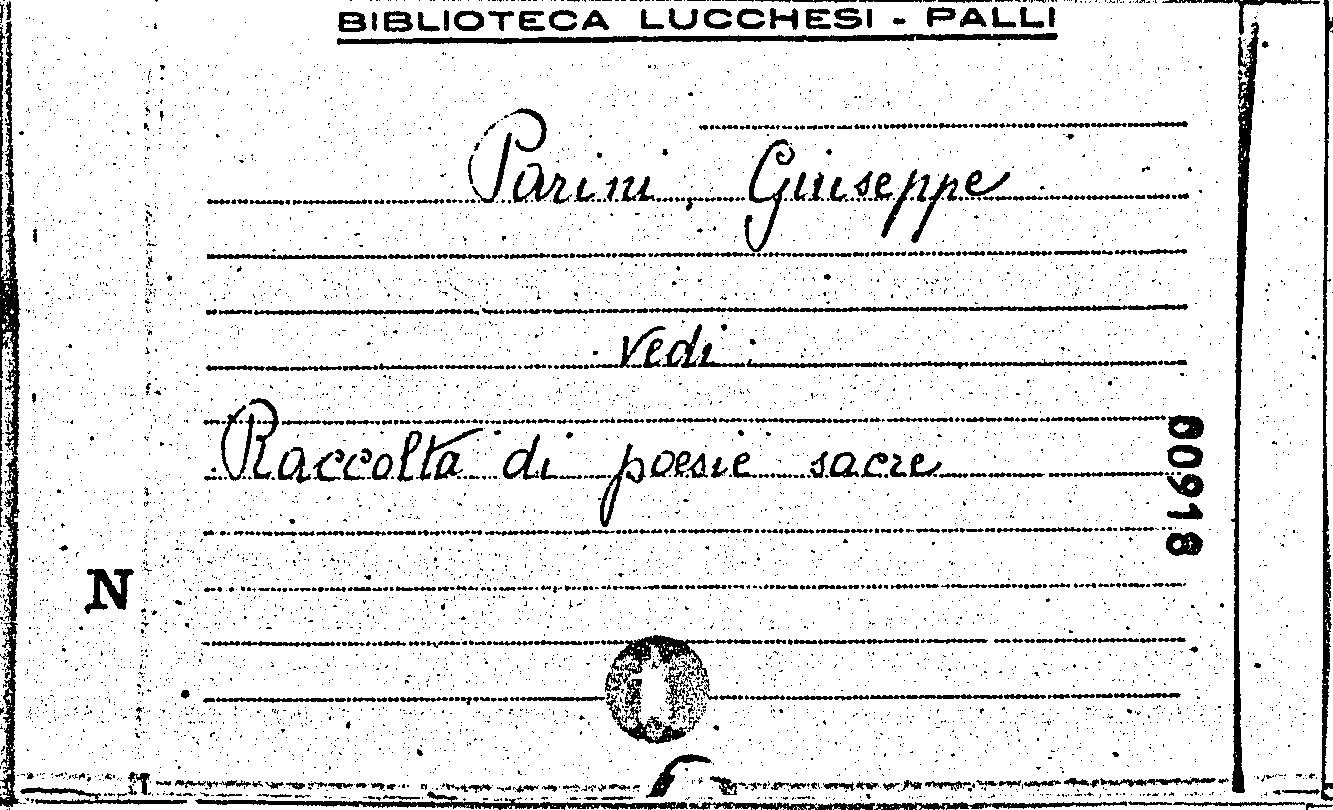 BIBLIOTECA LUCCHESI - PALLI
Parini, Giuseppe
vedi:
Raccolta di poesie sacre
00918
N